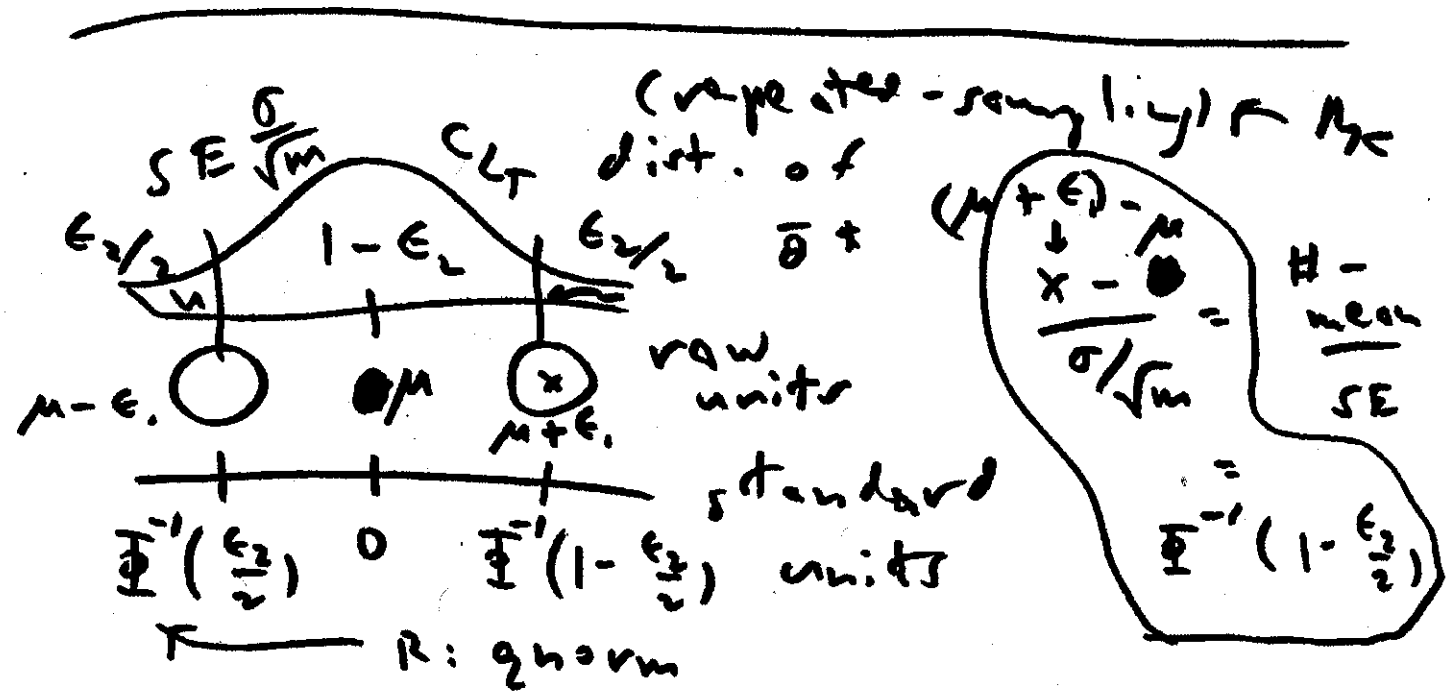 (repeated-sampling)
SE σ/√m CLT dist. of
ε₂/2 1 - ε₂ ε₂/2 θ̄*
μ - ε₁ μ μ + ε₁ raw units
standard units
Φ⁻¹(ε₂/2) 0 Φ⁻¹(1 - ε₂/2)
R: qnorm
(μ + ε₁) - μ
↓
x - μ
σ/√m
= # - mean
SE
= Φ⁻¹(1 - ε₂/2)